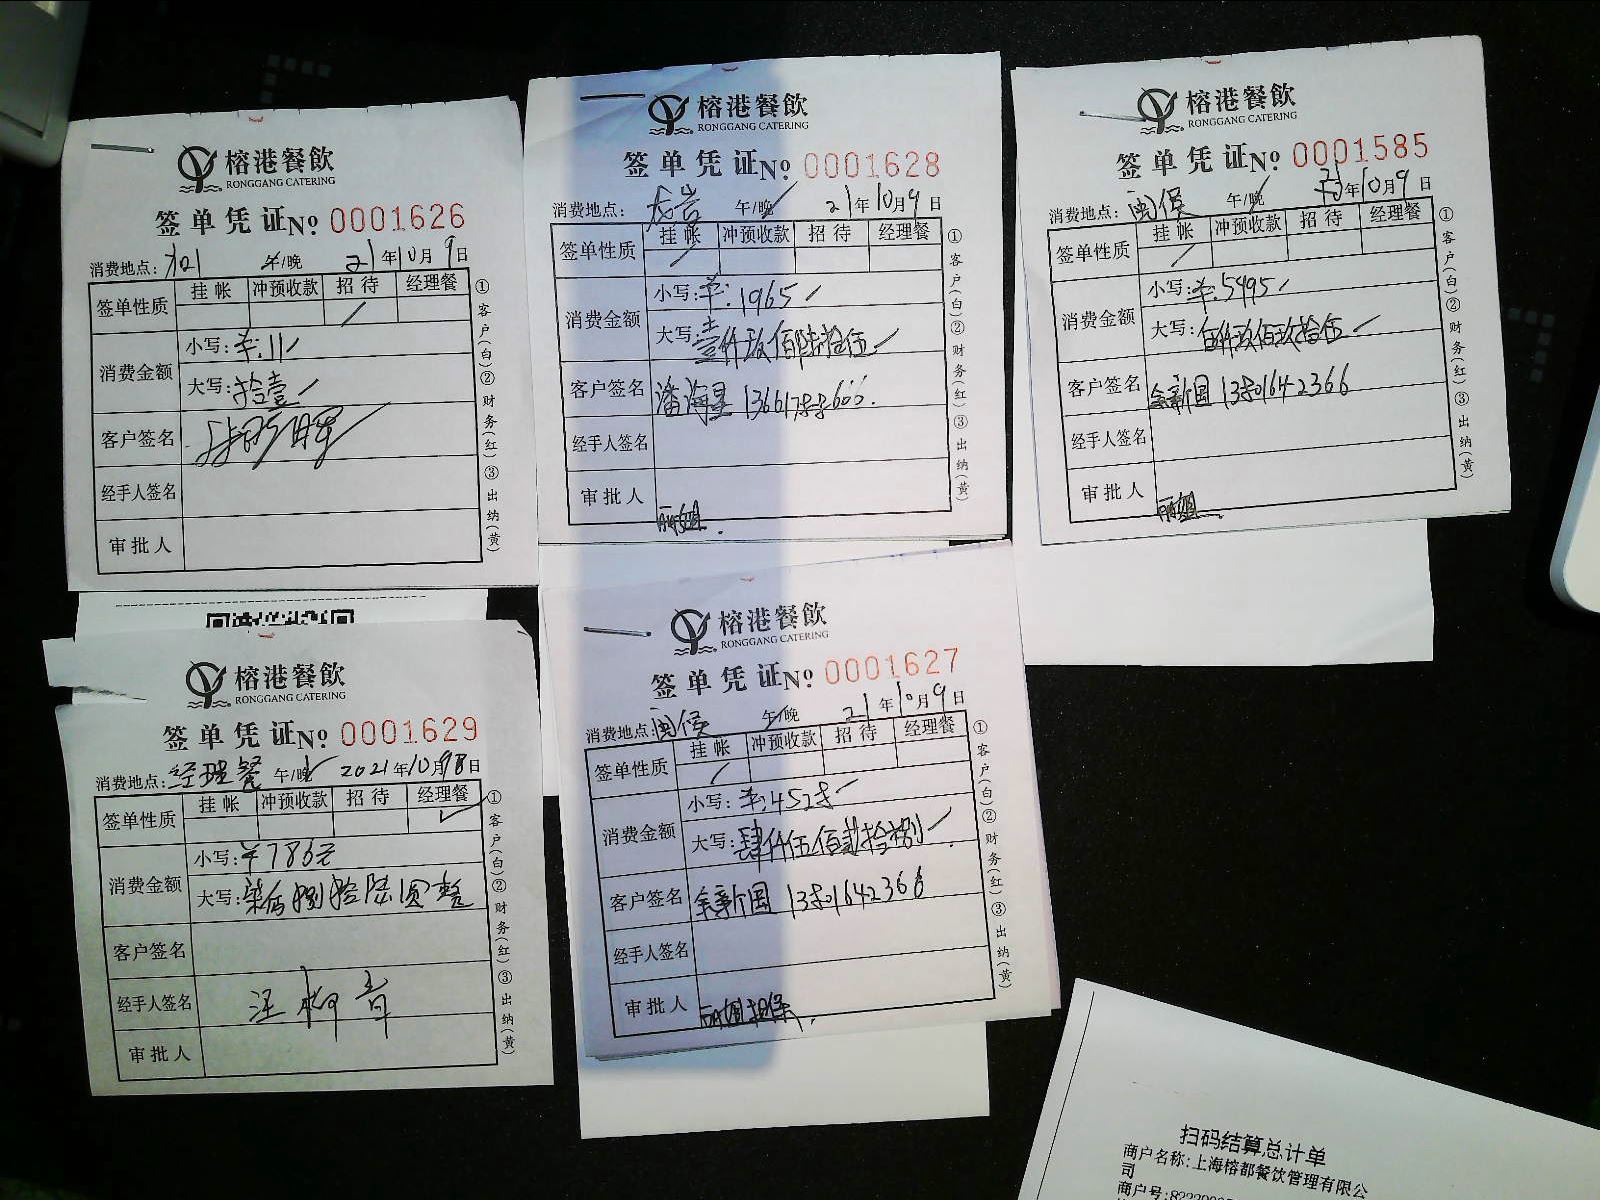 榕港餐飲
RONGGANG CATERING
签单凭证No 0001626
消费地点: 午/晚 21年10月9日
签单性质 挂帐 冲预收款 招待 经理餐
消费金额 小写: 羊:11
大写: 拾壹
客户签名
经手人签名
审批人
①客户(白)②财务(红)③出纳(黄)
榕港餐飲
RONGGANG CATERING
签单凭证No 0001628
消费地点: 龙岩 午/晚 21年10月9日
签单性质 挂帐 冲预收款 招待 经理餐
消费金额 小写: 羊:1965
大写: 壹仟玖佰陆拾伍
客户签名 潘海星
经手人签名
审批人
①客户(白)②财务(红)③出纳(黄)
榕港餐飲
RONGGANG CATERING
签单凭证No 0001585
消费地点: 闽侯 午/晚 21年10月9日
签单性质 挂帐 冲预收款 招待 经理餐
消费金额 小写: 羊:5995
大写: 伍仟玖佰玖拾伍
客户签名 余新国 13801642366
经手人签名
审批人
①客户(白)②财务(红)③出纳(黄)
榕港餐飲
RONGGANG CATERING
签单凭证No 0001629
消费地点: 经理餐 午/晚 2021年10月9日
签单性质 挂帐 冲预收款 招待 经理餐
消费金额 小写: ¥786元
大写: 柒佰捌拾陆圆整
客户签名
经手人签名 汪柳章
审批人
①客户(白)②财务(红)③出纳(黄)
榕港餐飲
RONGGANG CATERING
签单凭证No 0001627
消费地点: 闽侯 午/晚 21年10月9日
签单性质 挂帐 冲预收款 招待 经理餐
消费金额 小写: 羊:4528
大写: 肆仟伍佰贰拾捌
客户签名 余新国 13801642366
经手人签名
审批人 担保
①客户(白)②财务(红)③出纳(黄)
扫码结算总计单
商户名称:上海榕都餐饮管理有限公
司
商户号:8222900